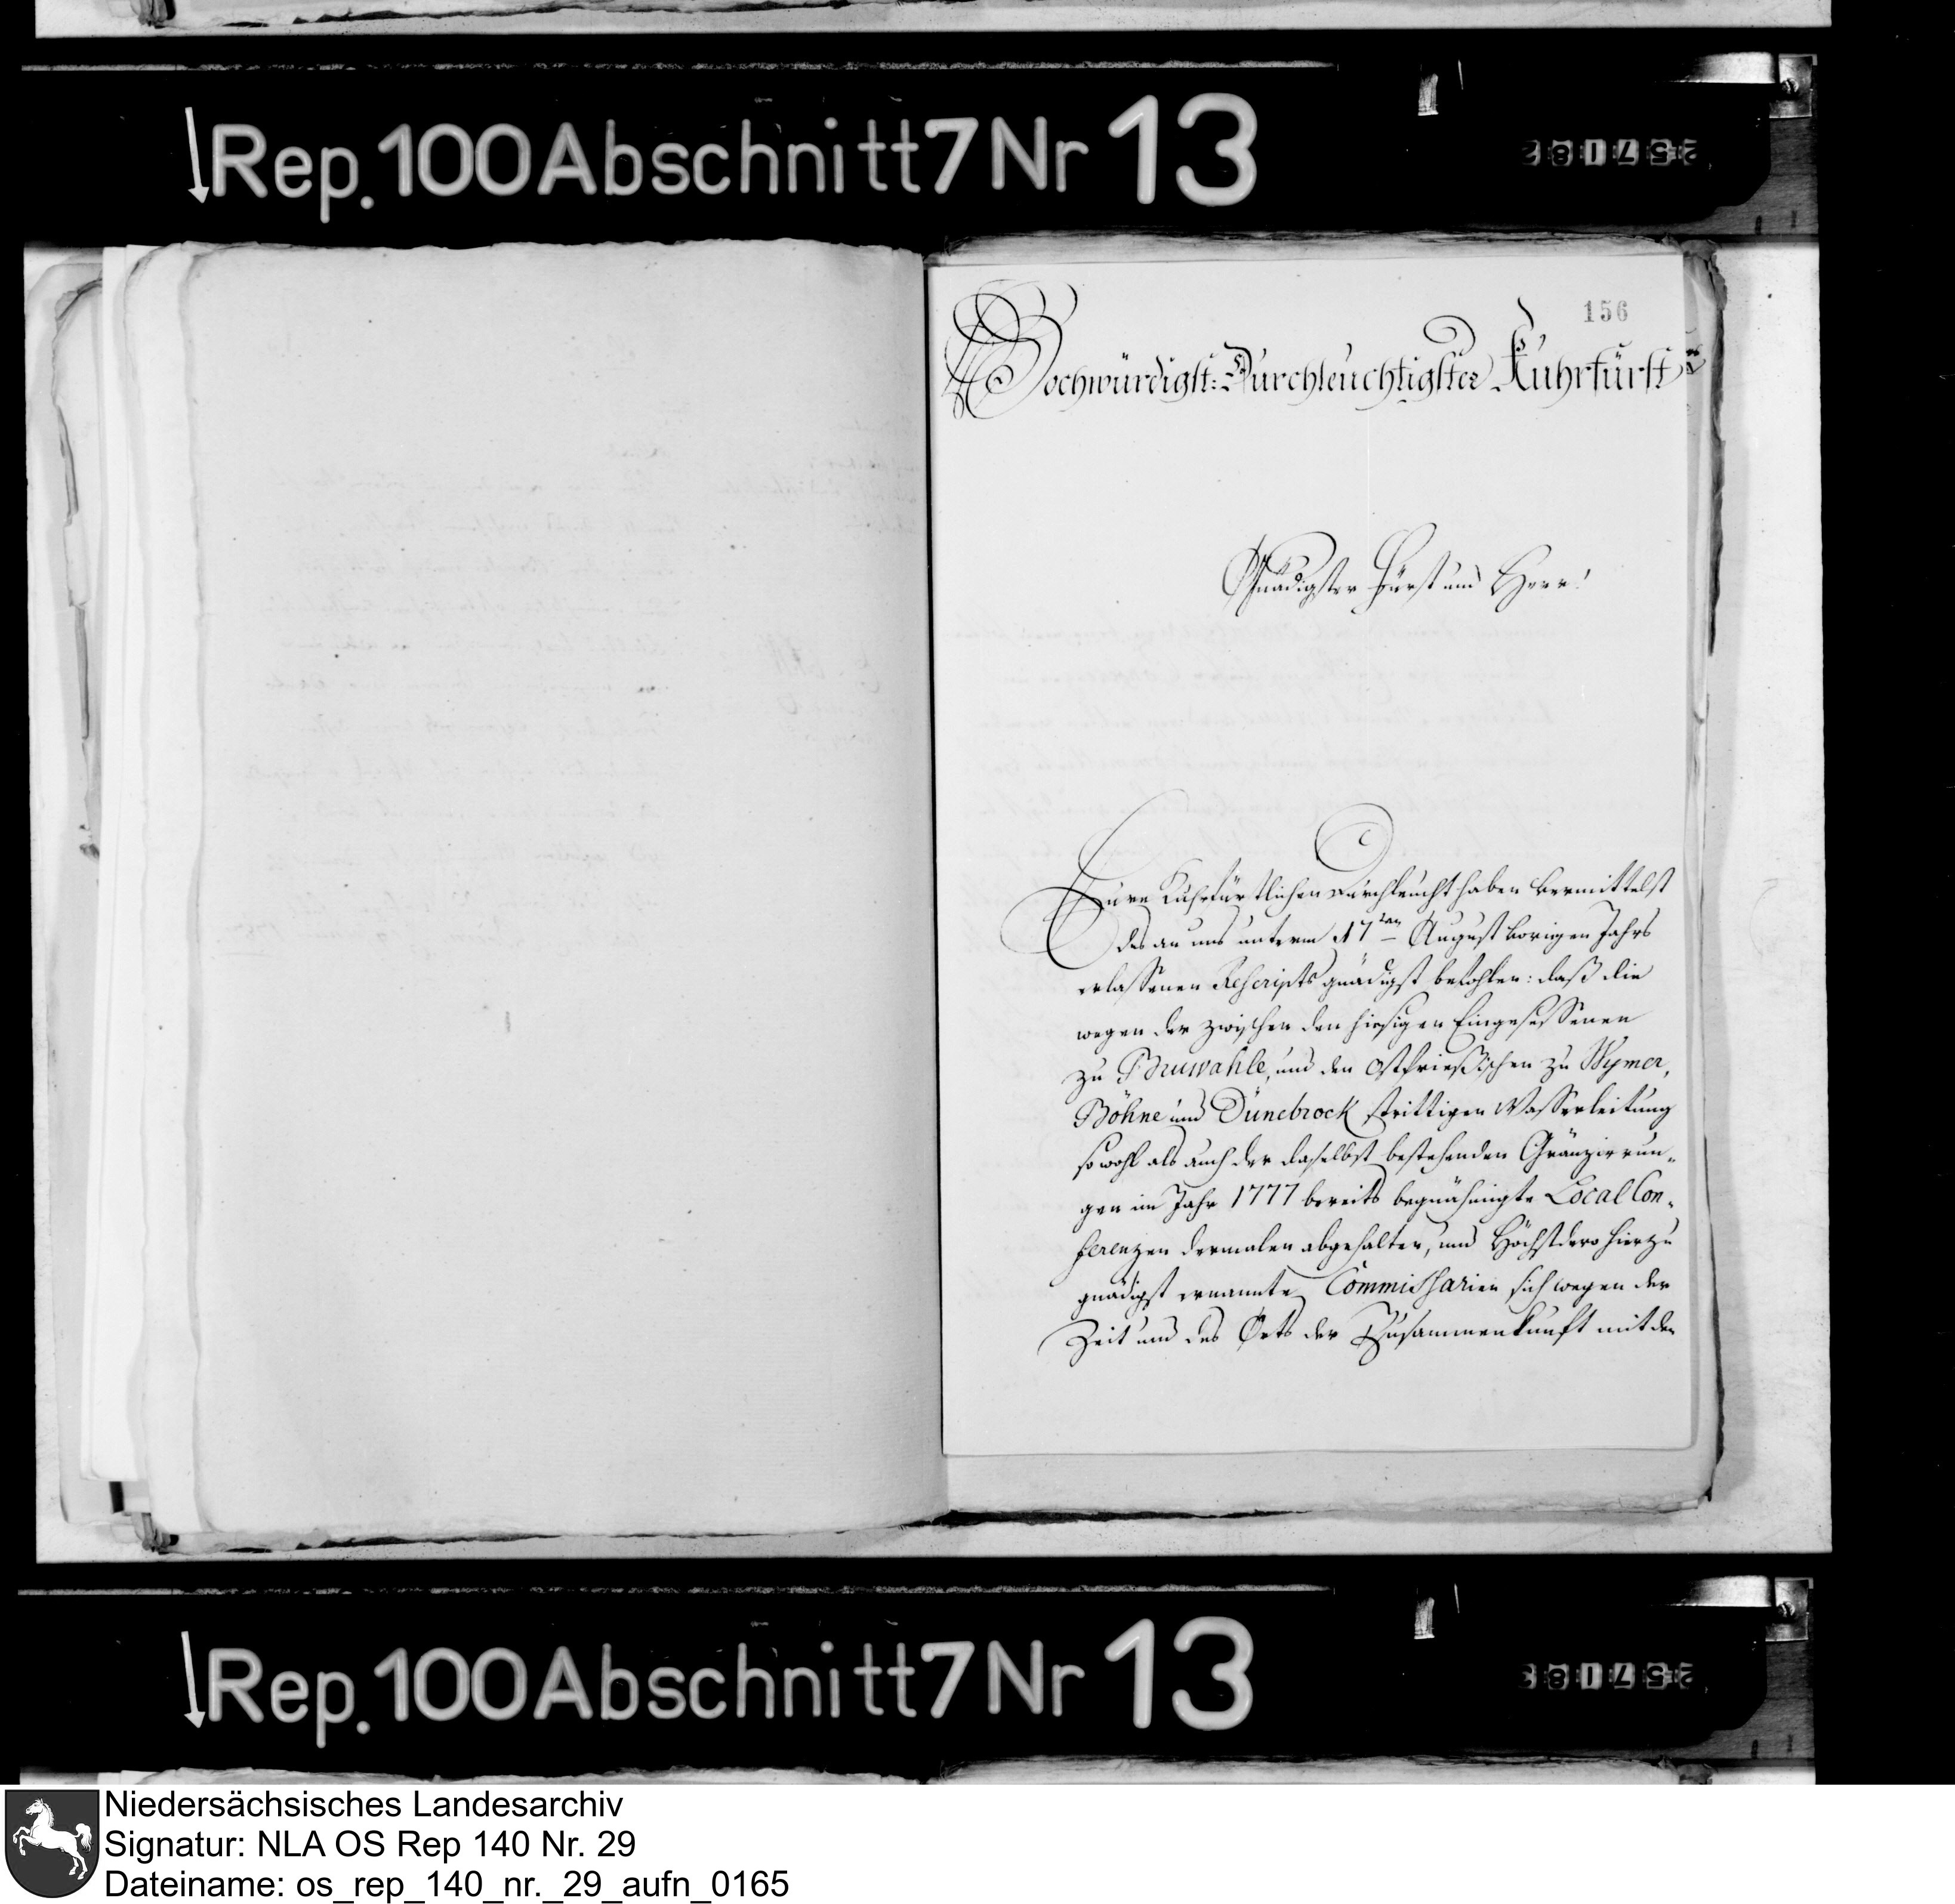 Rep. 100 Abschnitt 7 Nr 13
257182
156
Hochwürdigst: Durchleuchtigster Kuhrfürst
Gnädigster Fürst und Herr!
Eure Kuhrfürstlichen Durchleucht haben vermittelst
des an uns unterm 17ten August vorigen Jahrs
erlassenen Rescripts gnädigst befohlen: daß die
wegen der zwischen den hiesigen Eingesessenen
zu Bruwahle, und den ostfrießischen zu Wymer,
Böhne und Dünebrock strittigen Wasserleitung
so wohl als auch der daselbst bestehenden Gränzirrun„
gen im Jahr 1777 bereits begnähmigte Local Con„
ferenzen dermalen abgehalten, und Höchstdero hierzu
gnädigst ernannte Commissarien sich wegen der
Zeit und des Orts der Zusammenkunft mit den
Rep. 100 Abschnitt 7 Nr 13
257183
Niedersächsisches Landesarchiv
Signatur: NLA OS Rep 140 Nr. 29
Dateiname: os_rep_140_nr._29_aufn_0165